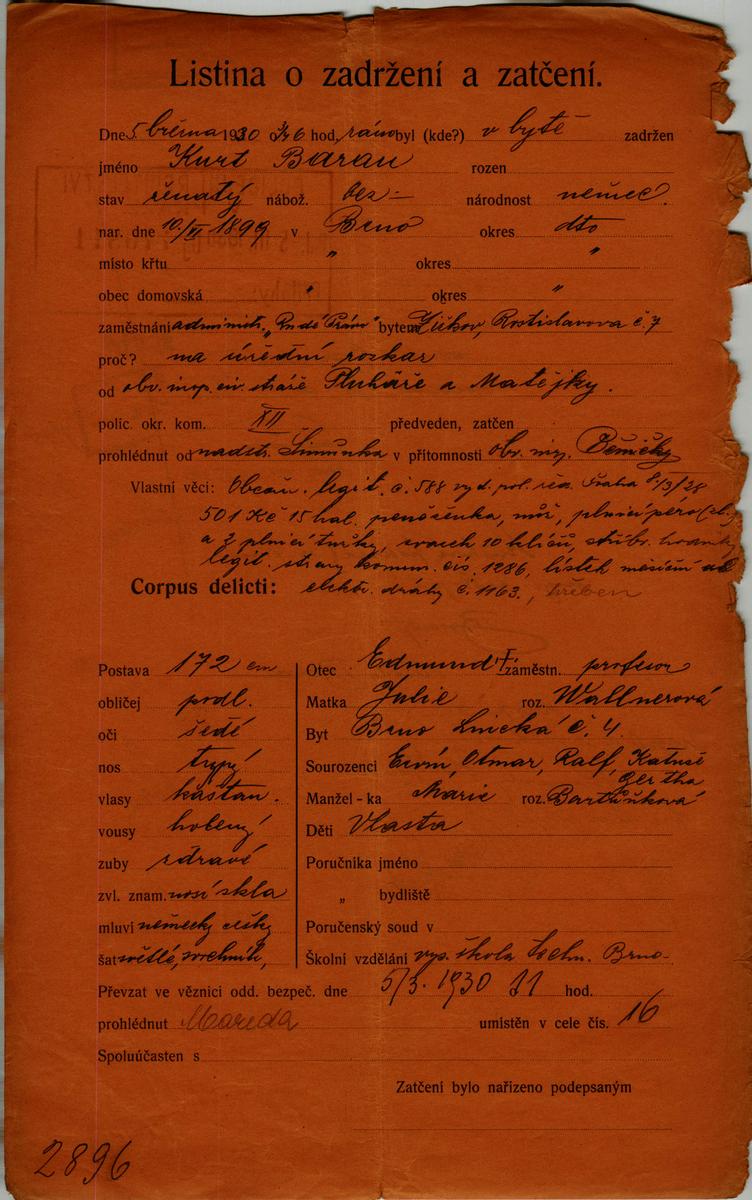 Listina o zadržení a zatčení.
Dne 5 března 1930 o 3/4 6 hod, ráno byl (kde?) v bytě zadržen
jméno Kurt Baran rozen
stav ženatý nábož. bez- národnost němec.
nar. dne 10./VI 1899 v Brno okres dto
místo křtu " okres "
obec domovská " okres "
zaměstnání administr. "Rudé Právo" bytem Žižkov, Rostislavova č. 7
proč? na úřední rozkaz
od obv. insp. civ. stráže Pluháře a Matějky.
polic. okr. kom. XII předveden, zatčen
prohlédnut od nadstr. Šimůnka v přítomnosti obv. insp.
Vlastní věci: Občan. legit. č. 588 vyd. pol. řed. Praha 8/3/28
501 Kč 15 hal. peněženka, nůž, plnicí péro
a 2 plnicí tužky, svazek 10 klíčů, stříbr. hodinky
legit. strany komun. čís. 1286, lístek měsíční
Corpus delicti: elektr. dráhy č. 1163., hřeben
Postava 172 cm
obličej podl.
oči šedé
nos tupý
vlasy kaštan.
vousy holený
zuby zdravé
zvl. znam. nosí skla
mluví německy česky
šat světlé, svrchník,
Otec Edmund † zaměstn. profesor
Matka Julie roz. Wallnerová
Byt Brno Lnická č. 4.
Sourozenci Ervín, Otmar, Ralf, Katuše
Gertha
Manžel - ka Marie roz. Bartůňková
Děti Vlasta
Poručníka jméno
" bydliště
Poručenský soud v
Školní vzdělání vys. škola techn. Brno-
Převzat ve věznici odd. bezpeč. dne 5/3. 1930 11 hod.
prohlédnut Mareda umístěn v cele čís. 16
Spoluúčasten s
Zatčení bylo nařízeno podepsaným
2896